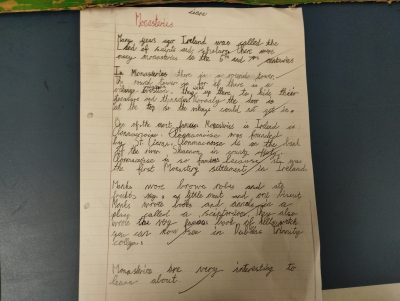 Monasteries
Many years ago Ireland was called the
land of saints and scholars. There were
many monasteries in the 5th and 7th centuries
In Monasteries there is a round tower.
The round tower is for if there is a
viking They go there to hide their
and The door is
at the top so the vikings could not get in.
One of the most famous Monasteries in Ireland is
Clonmacnoise. Clonmacnoise was founded
by St Ciaran. Clonmacnoise is on the bank
off the river Shannon in county
Clonmacnoise is so famous because it was
the first Monastery settlement in Ireland
Monks wore brown robes and ate
a little meat and
Monks wrote books and in a
place called a They also
wrote the very famous book of kells which
you can now see in Dublins trinity
collage.
Monasteries are very interesting to
learn about